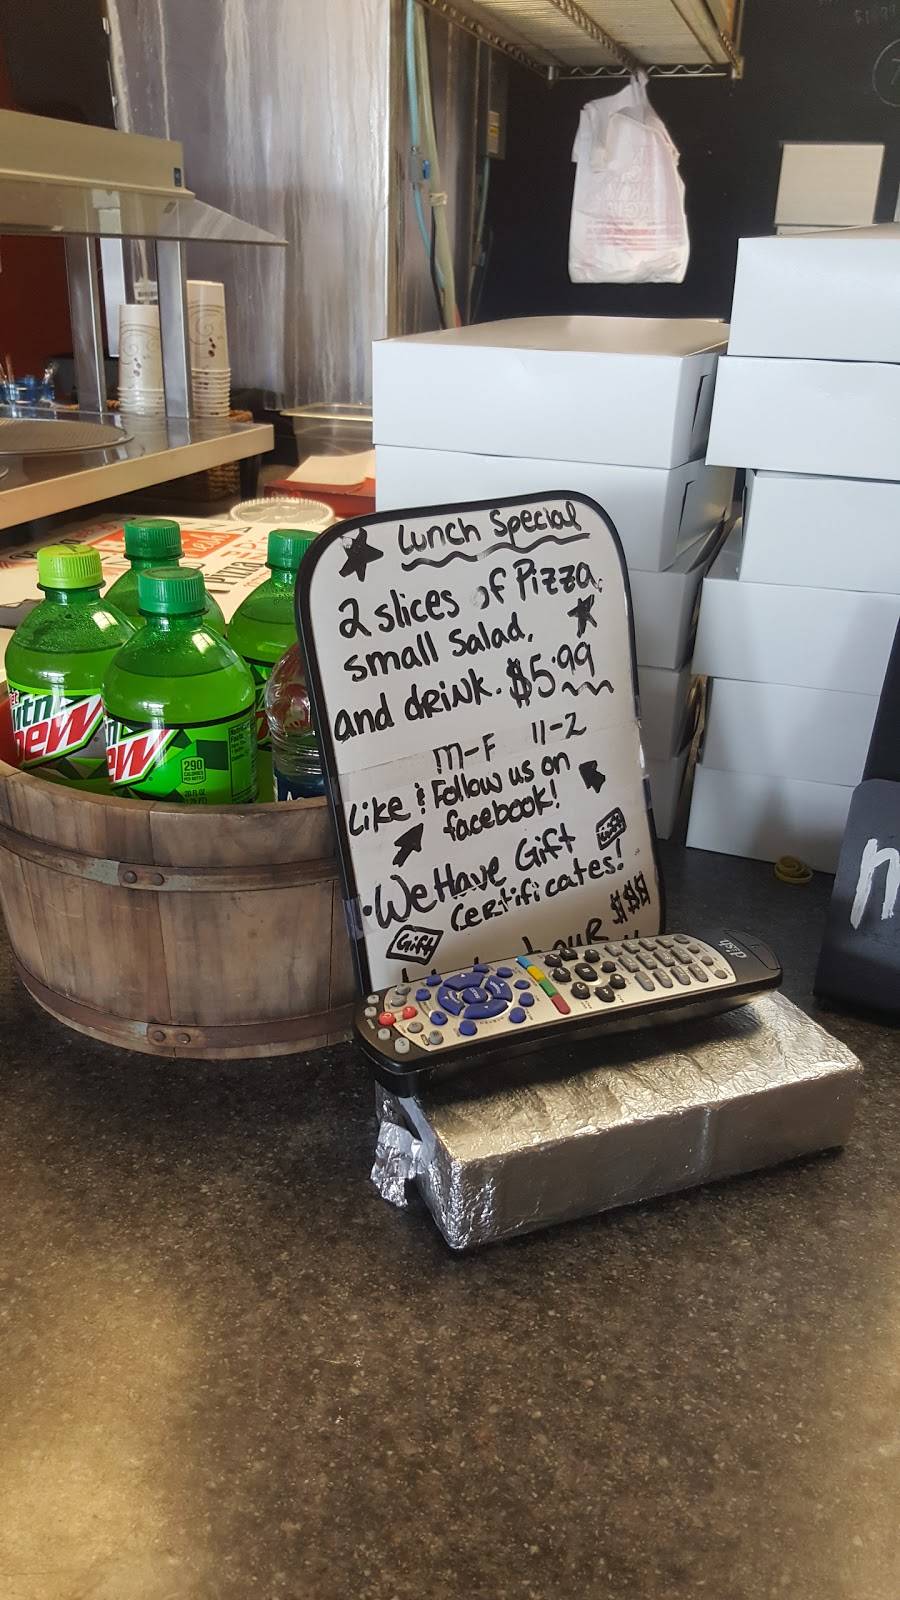 Lunch Special
2 slices of Pizza,
small salad,
and drink. $5.99
M-F 11-2
Like & Follow us on
facebook!
We Have Gift
Certificates!
Gift
$$$
mtn
Dew
Dew
290
dish